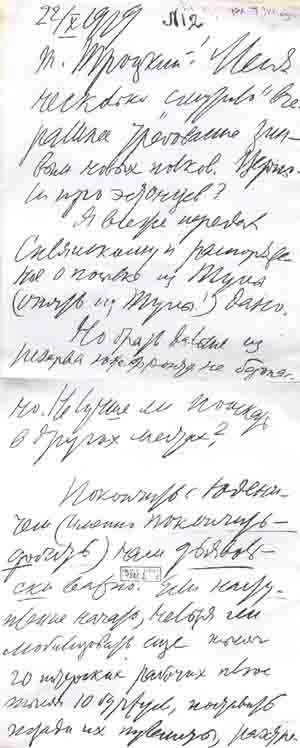 22/X 1919 №2
т. Троцкий! Меня
несколько смутило вче-
рашнее требование Зин.
новых полков. Верно
ли про эстонцев?
Я вчера передал
Склянскому и распоряже-
ние о полке из Тулы
(опять из Тулы!) дано.
Но брать дальше из
резерва южфронта не безопас-
но. Не лучше ли поискать
в других местах?
Покончить с Юдени-
чем (именно покончить –
добить) нам дьяволь-
ски важно. Если насту-
пление начато, нельзя ли
мобилизовать еще тысяч
20 питерских рабочих плюс
тысяч 10 буржуев, поставить
позади их пулеметы, расстре-